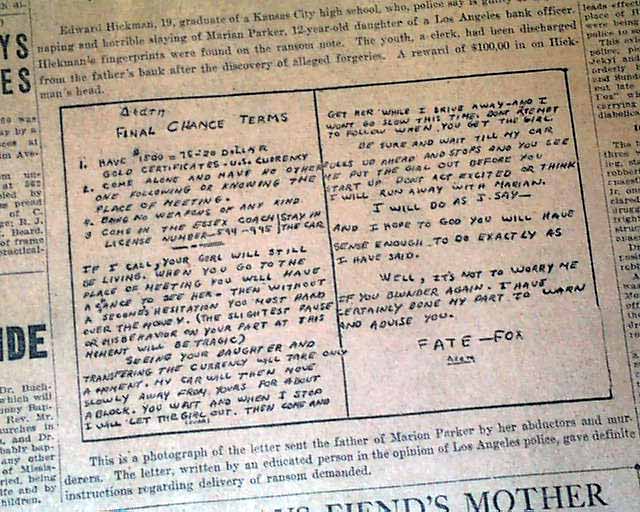 Edward Hickman, 19, graduate of a Kansas City high school, who, police say is guilty
naping and horrible slaying of Marian Parker, 12-year-old daughter of a Los Angeles bank officer.
Hickman's fingerprints were found on the ransom note. The youth, a clerk, had been discharged
from the father's bank after the discovery of alleged forgeries. A reward of $100,00 in on Hick-
man's head.
Death
FINAL CHANCE TERMS
1. HAVE $1500 = 75-20 DOLLAR
GOLD CERTIFICATES - U.S. CURRENCY
2. COME ALONE AND HAVE NO OTHER
ONE FOLLOWING OR KNOWING THE
PLACE OF MEETING.
BRING NO WEAPONS OF ANY KIND
3 COME IN THE ESSEX COACH STAY IN
LICENSE NUMBER - 594-995 THE CAR
IF I CALL, YOUR GIRL WILL STILL
BE LIVING. WHEN YOU GO TO THE
PLACE OF MEETING YOU WILL HAVE
A CHANCE TO SEE HER. THEN WITHOUT
A SECOND'S HESITATION YOU MUST HAND
OVER THE MONEY. (THE SLIGHTEST PAUSE
OR MISBEHAVIOR ON YOUR PART AT THIS
MOMENT WILL BE TRAGIC)
SEEING YOUR DAUGHTER AND
TRANSFERING THE CURRENCY WILL TAKE ONLY
A MOMENT. MY CAR WILL THEN MOVE
SLOWLY AWAY FROM YOURS FOR ABOUT
A BLOCK. YOU WAIT AND WHEN I STOP
I WILL LET THE GIRL OUT. THEN COME AND
GET HER WHILE I DRIVE AWAY - AND I
WONT GO SLOW THIS TIME. DONT ATEMPT
TO FOLLOW WHEN YOU GET THE GIRL.
BE SURE AND WAIT TILL MY CAR
PULLS UP AHEAD AND STOPS AND YOU SEE
ME PUT THE GIRL OUT BEFORE YOU
START UP. DONT ACT EXCITED OR THINK
I WILL RUN AWAY WITH MARIAN.
I WILL DO AS I SAY -
AND I HOPE TO GOD YOU WILL HAVE
SENSE ENOUGH TO DO EXACTLY AS
I HAVE SAID.
WELL, IT'S NOT TO WORRY ME
IF YOU BLUNDER AGAIN. I HAVE
CERTAINLY DONE MY PART TO WARN
AND ADVISE YOU.
FATE - FOX
This is a photograph of the letter sent the father of Marion Parker by her abductors and mur-
derers. The letter, written by an educated person in the opinion of Los Angeles police, gave definite
instructions regarding delivery of ransom demanded.
FIEND'S MOTHER